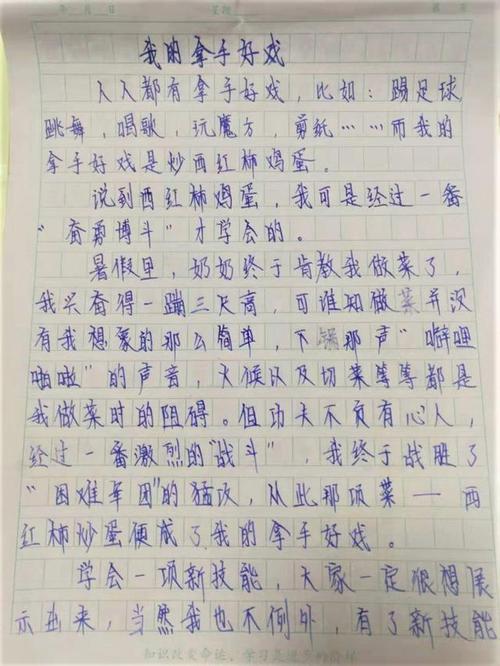 年 月 日 星期 第 页
我的拿手好戏
人人都有拿手好戏，比如：踢足球
跳舞，唱歌，玩魔方，剪纸……而我的
拿手好戏是炒西红柿鸡蛋。
说到西红柿鸡蛋，我可是经过一番
“奋勇博斗”才学会的。
暑假里，奶奶终于肯教我做菜了，
我兴奋得一蹦三尺高，可谁知做菜并没
有我想象的那么简单，下锅那声“噼哩
啪啦”的声音，火候以及切菜等等都是
我做菜时的阻碍。但功夫不负有心人，
经过一番激烈的“战斗”，我终于战胜了
“困难军团”的猛攻，从此那项菜——西
红柿炒蛋便成了我的拿手好戏。
学会一项新技能，大家一定很想展
示出来，当然我也不例外，有了新技能
知识改变命运，学习是进步的阶梯